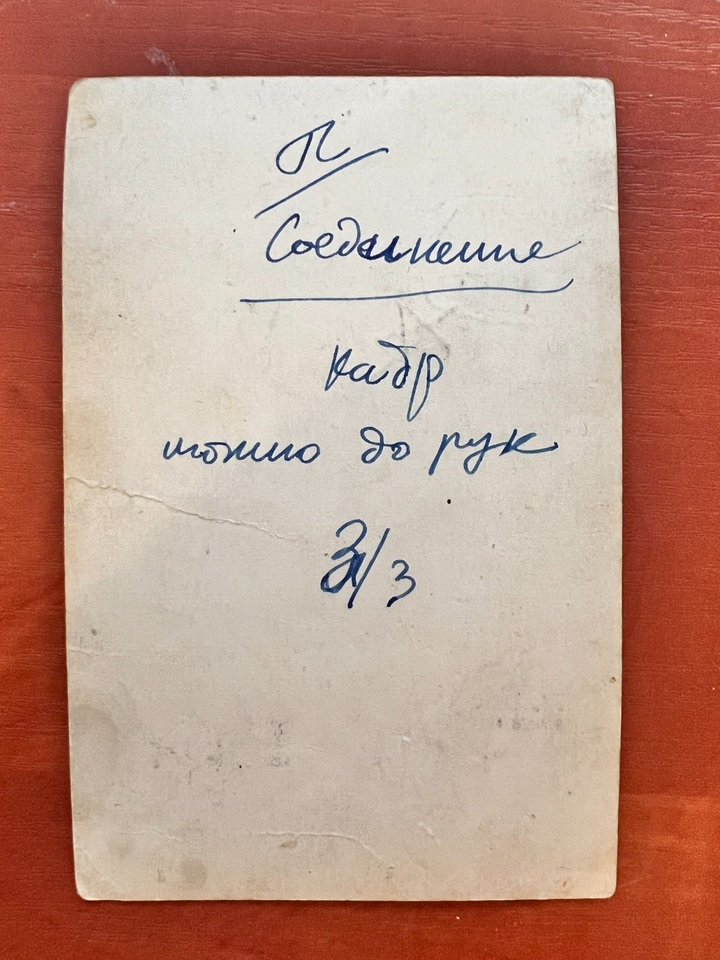 П
Соединение
кадр
можно до рук
3/3